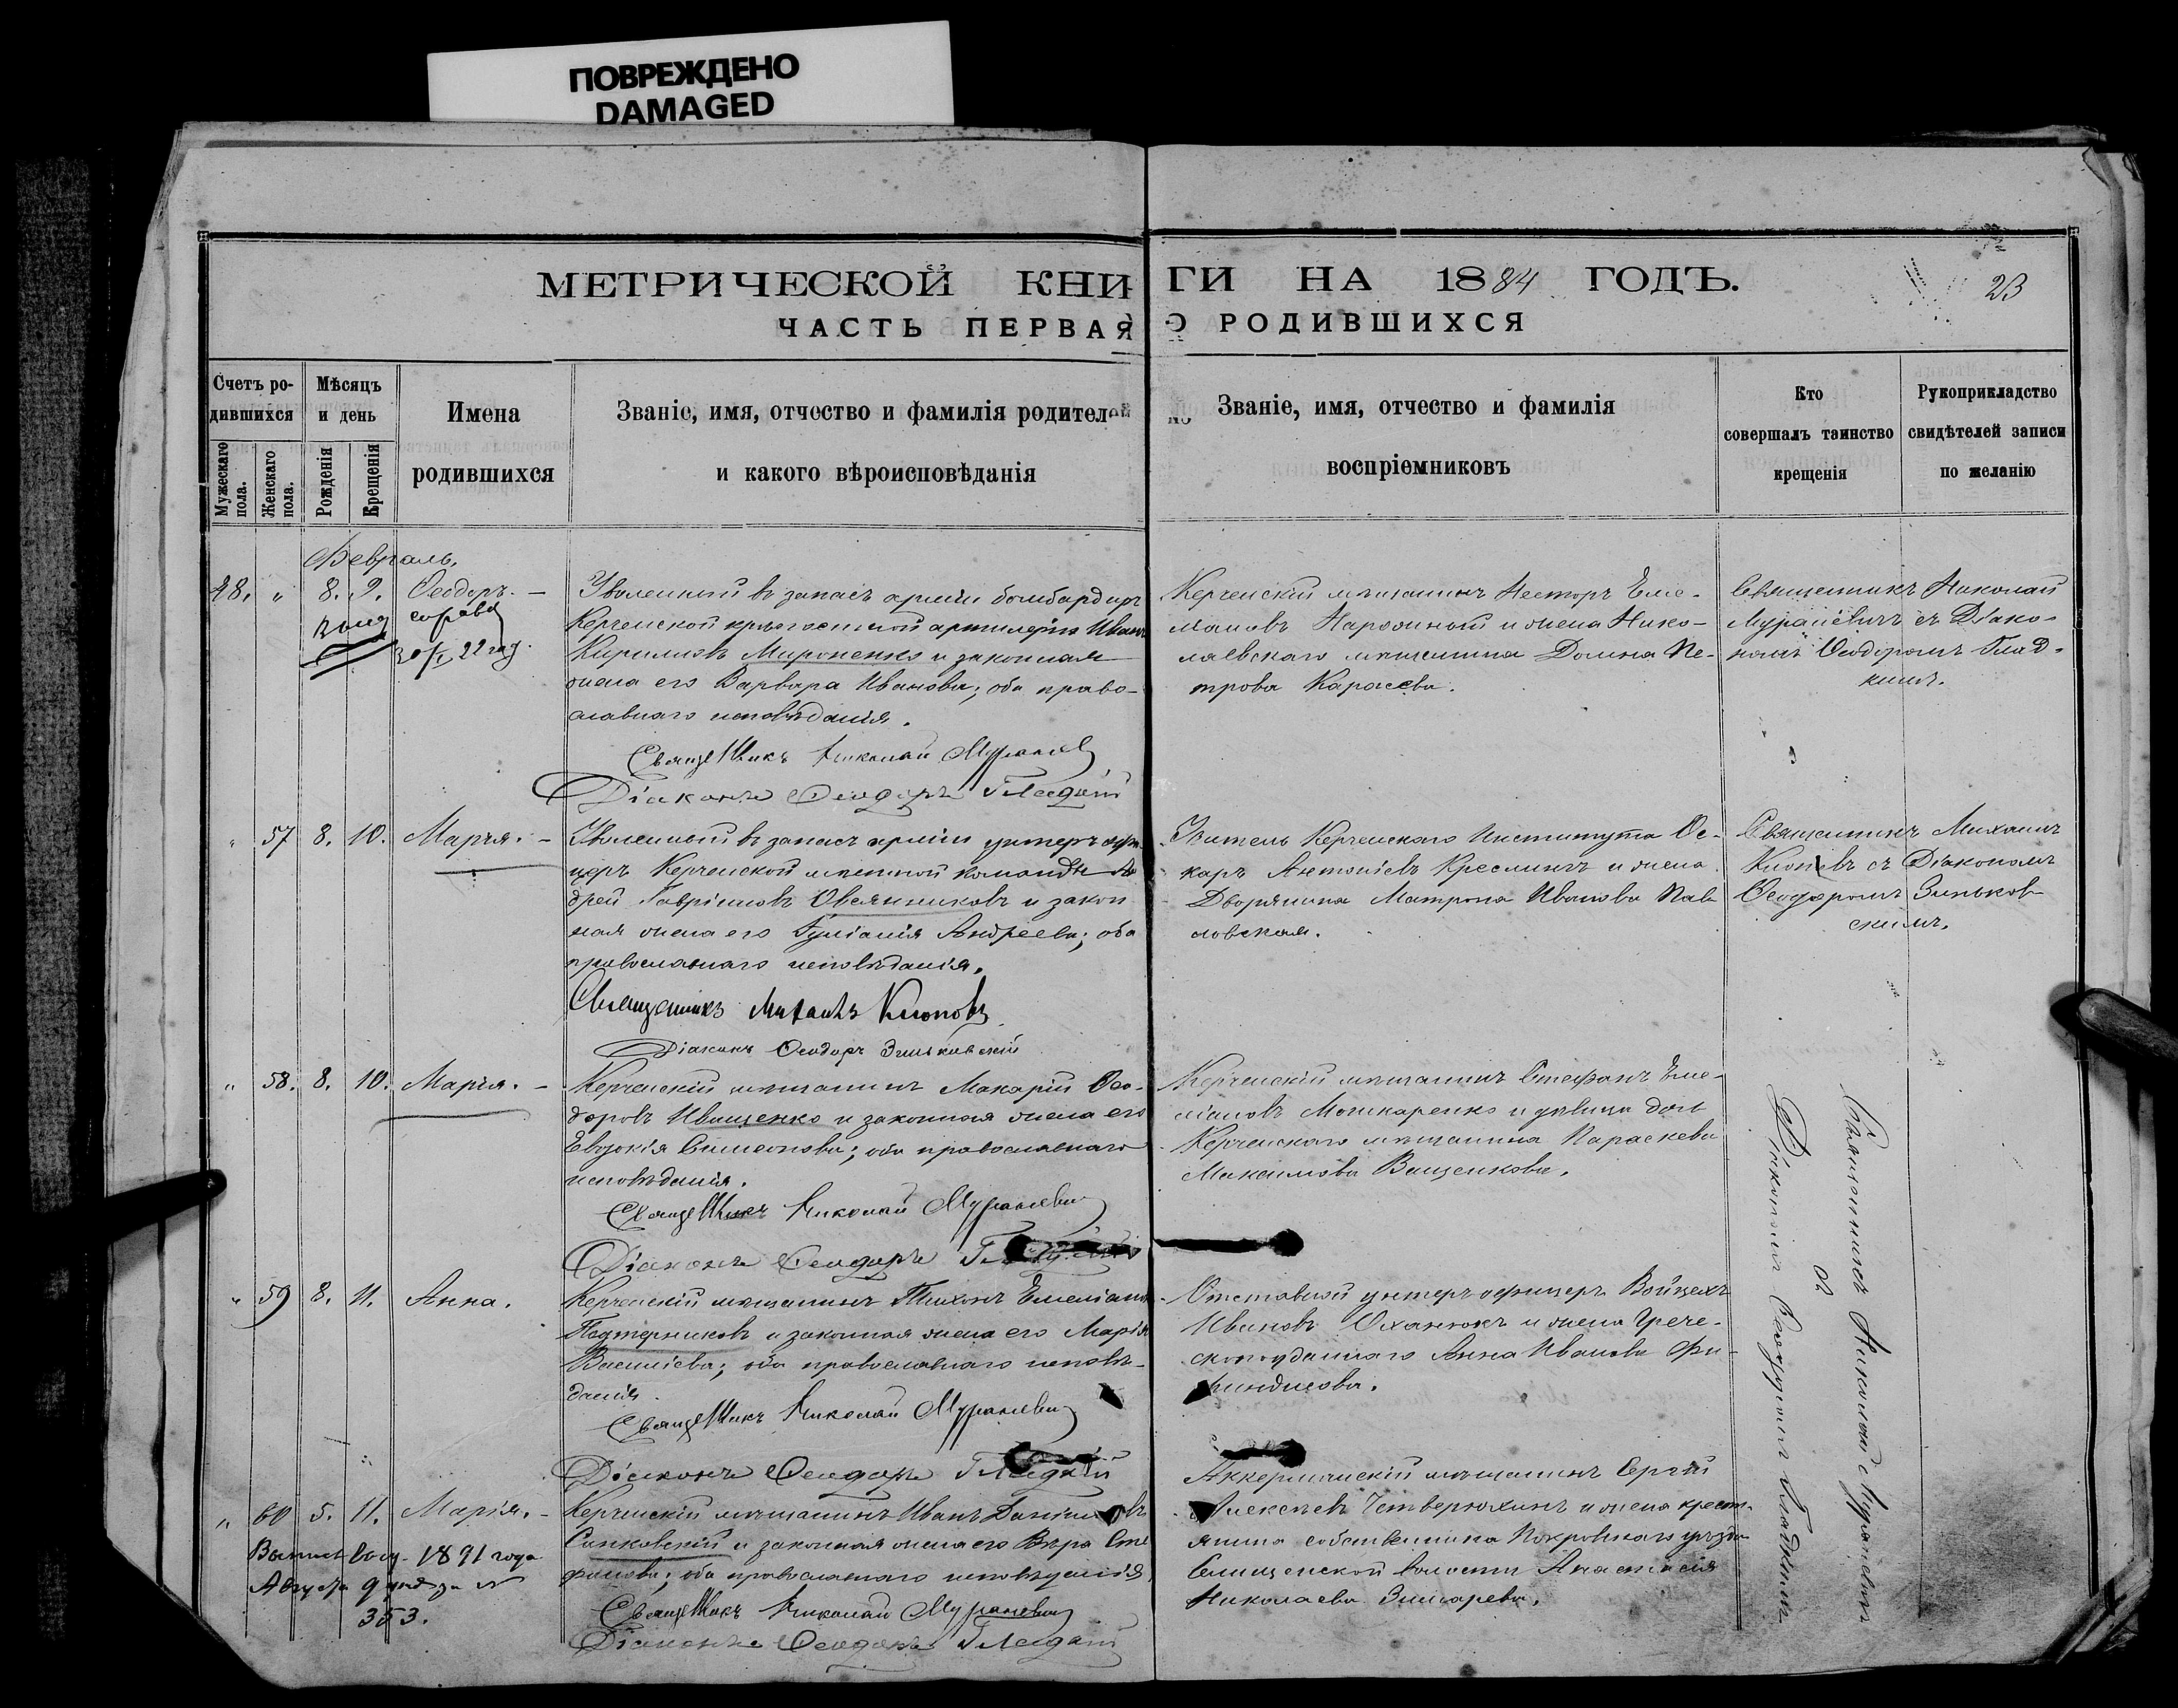 ПОВРЕЖДЕНО
DAMAGED
МЕТРИЧЕСКОЙ КНИГИ НА 1884 ГОДЪ.
23
ЧАСТЬ ПЕРВАЯ О РОДИВШИХСЯ
Счетъ ро-
дившихся
Мужескаго пола.
Женскаго пола.
Мѣсяцъ
и день
Рожденія
Крещенія
Имена
родившихся
Званіе, имя, отчество и фамилія родителей
и какого вѣроисповѣданія
Званіе, имя, отчество и фамилія
воспріемниковъ
Кто
совершалъ таинство
крещенія
Рукоприкладство
свидѣтелей записи
по желанію
Февраль.
48. " 8. 9. Ѳеодоръ. —
справа
22 год.
Уволенный въ запасъ арміи бомбардиръ
Керченской крѣпостной артилеріи Иванъ
Кириловъ Мироненко и законная
жена его Варвара Иванова; оба право-
славнаго исповѣданія.
Священникъ Николай Мураневичъ
Діаконъ Ѳеодоръ Гладкій
Керченскій мѣщанинъ Несторъ Еме-
льяновъ и жена Нико-
лаевскаго мѣщанина Домна Пе-
трова Карасева.
Священникъ Николай
Мураневичъ съ Діако-
номъ Ѳеодоромъ Глад-
кимъ.
" 57 8. 10. Марья. —
Уволенный въ запасъ арміи унтеръ офи
церъ Керченской мѣстной команды Ан
дрей Гавріиловъ Овсянниковъ и закон
ная жена его Іуліанія Андреева; оба
православнаго исповѣданія.
Священникъ Михаилъ Клоповъ
Діаконъ Ѳеодоръ Зиньковскій
Учитель Керченскаго Института Ос-
каръ Антоніевъ Креслингъ и жена
Дворянина Матрона Иванова Пав-
ловская.
Священникъ Михаилъ
Клоповъ съ Діакономъ
Ѳеодоромъ Зиньков-
скимъ.
" 58. 8. 10. Марія. —
Керченскій мѣщанинъ Макарій Ѳео-
доровъ Иващенко и законная жена его
Евдокія Симеонова; оба православнаго
исповѣданія.
Священникъ Николай Мураневичъ
Діаконъ Ѳеодоръ Гладкій
Керченскій мѣщанинъ Стефанъ Еме-
ліановъ Мошкаренко и дѣвица дочь
Керченскаго мѣщанина Параскева
Максимова Ващенкова.
Священникъ Николай Мураневичъ
съ
Діакономъ Ѳеодоромъ Гладкимъ
" 59 8. 11. Анна.
Керченскій мѣщанинъ Тихонъ Емеліановъ
Подтерниковъ и законная жена его Марія
Василіева; оба православнаго исповѣ-
данія.
Священникъ Николай Мураневичъ
Діаконъ Ѳеодоръ Гладкій
Отставной унтеръ офицеръ Войцехъ
Ивановъ Оханюкъ и жена Грече-
скоподданнаго Анна Иванова
" 60 5. 11. Марія. —
1891 года
Августа 9 дня за №
353.
Керченскій мѣщанинъ Иванъ Даніиловъ
Синковскій и законная жена его Вѣра Сте
фанова; оба православнаго исповѣданія
Священникъ Николай Мураневичъ
Діаконъ Ѳеодоръ Гладкій
Аккерманскій мѣщанинъ Сергій
Алексѣевъ Четверюхинъ и жена крест-
янина собственника Покровскаго уѣзда
волости Анастасія
Николаева Зингарева.